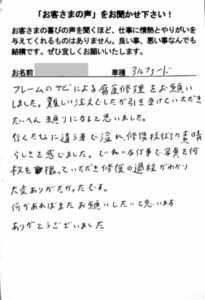 「お客さまの声」をお聞かせ下さい！
お客さまの喜びの声を聞くほど、仕事に情熱とやりがいを
与えてくれるものはありません。良い事、悪い事なんでも
結構です。ぜひ宜しくお願いいたします。
お名前 車種 アルファード
フレームのサビによる腐食修理をお願い
しました。難しい注文でしたが引き受けていただき
たいへん頼りになると思いました。
行くたびに違う車で溢れ、修復技術の素晴
らしさを感じました。じねいな仕事で写真を何
枚も撮っていただき修復の過程がわかり
大変ありがたかったです。
何かあればまたお願いしたいと思います
ありがとうございました